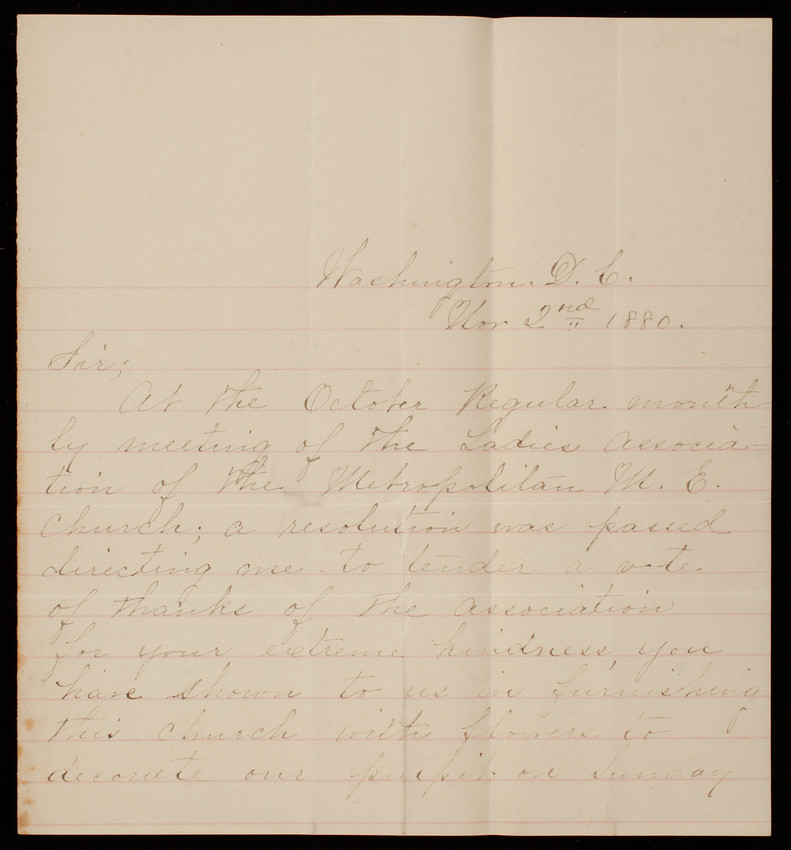 Washington. D. C.
Nov 2nd 1880.
Sir;
At the October Regular month
ly meeting of the Ladies Associa-
tion of the Metropolitan M. E.
Church; a resolution was passed
directing me to tender a vote
of thanks of the Association
for your extreme kindness, you
have shown to us in furnishing
this church with flowers to
decorete our pulpit on Sunday